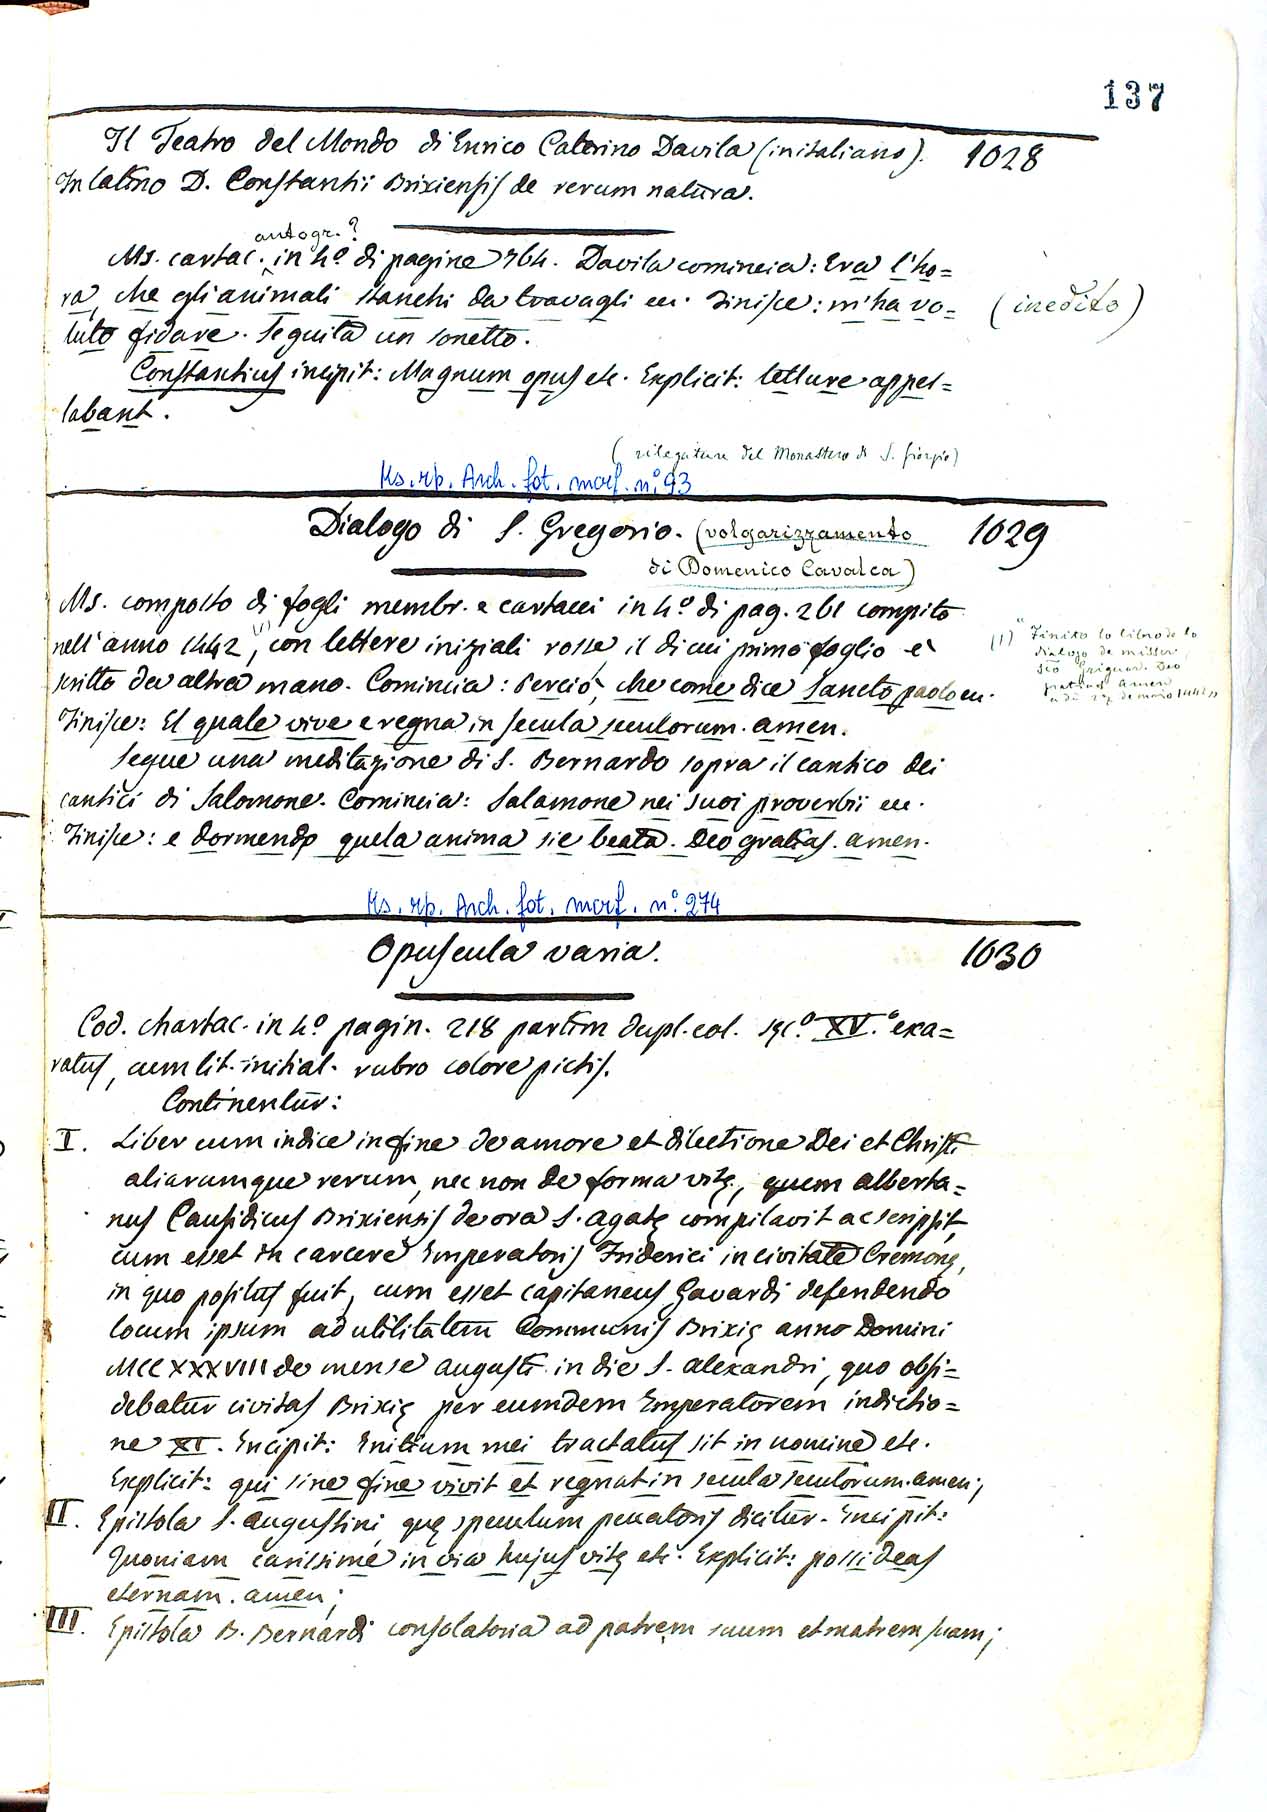 137
Il Teatro del Mondo di Enrico Caterino Davila (in italiano). 1028
In latino D. Constantii Brixiensis de rerum natura.
autogr. ?
Ms. cartac. in 4.º di pagine 764. Davila comincia: Era l'ho=
ra, che gli animali stanchi da travagli ec. Finisce: m'ha vo= (inedito)
luto fidare. Seguita un sonetto.
Constantius incipit: Magnum opus etc. Explicit: tellure appel=
labant.
(rilegatura del Monastero di S. Giorgio)
Ks. rp. Arch. fot. morf. n.º 93
Dialogo di S. Gregorio. (volgarizzamento 1029
di Domenico Cavalca)
Ms. composto di fogli membr. e cartacei in 4.º di pag. 261 compito
nell'anno 1442 (1), con lettere iniziali rosse, il di cui primo foglio è
scritto da altra mano. Comincia: Perciò, che come dice Sancto paolo ec.
Finisce: El quale vive e regna in secula seculorum. amen.
(1) "Finito lo libro de lo
dialogo de missor
sco Griguor. Deo
gratias Amen
a dì 27 de maro 1442"
Segue una meditazione di S. Bernardo sopra il cantico dei
cantici di Salomone. Comincia: Salamone nei suoi proverbii ec.
Finisce: e dormendo quela anima sie beata. Deo gratias. amen.
Ks. rp. Arch. fot. morf. n.º 274
Opuscula varia. 1030
Cod. chartac. in 4.º pagin. 218 partim dupl. col. sęc.º XV.º exa=
ratus, cum lit. initial. rubro colore pictis.
Continentur:
I. Liber cum indice in fine de amore et dilectione Dei et Christi
aliarumque rerum, nec non de forma vitę, quem Alberta=
nus Causidicus Brixiensis de ora S. Agatę compilavit ac scripsit,
cum esset in carcere Imperatoris Friderici in civitate Cremonę,
in quo positus fuit, cum esset capitaneus Gavardi defendendo
locum ipsum ad utilitatem Communis Brixię anno Domini
MCCXXXVIII de mense augusti in die S. Alexandri, quo obsi=
debatur civitas Brixię per eumdem Imperatorem indictio=
ne XI. Incipit: Initium mei tractatus sit in nomine etc.
Explicit: qui sine fine vivit et regnat in secula seculorum. amen;
II. Epistola S. Augustini, quę speculum peccatoris dicitur. Incipit:
Quoniam carissime in via hujus vitę etc. Explicit: possideas
eternam. amen;
III. Epistola B. Bernardi consolatoria ad patrem suum et matrem suam;